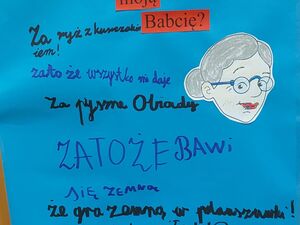 moją
Babcię?
Za ryż z kurczakiem!
zato że wszystko mi daje
Za pyszne Obiady
ZATOŻE BAWi
SIĘ ZEMNĄ
że gra zemną w planszuwki!